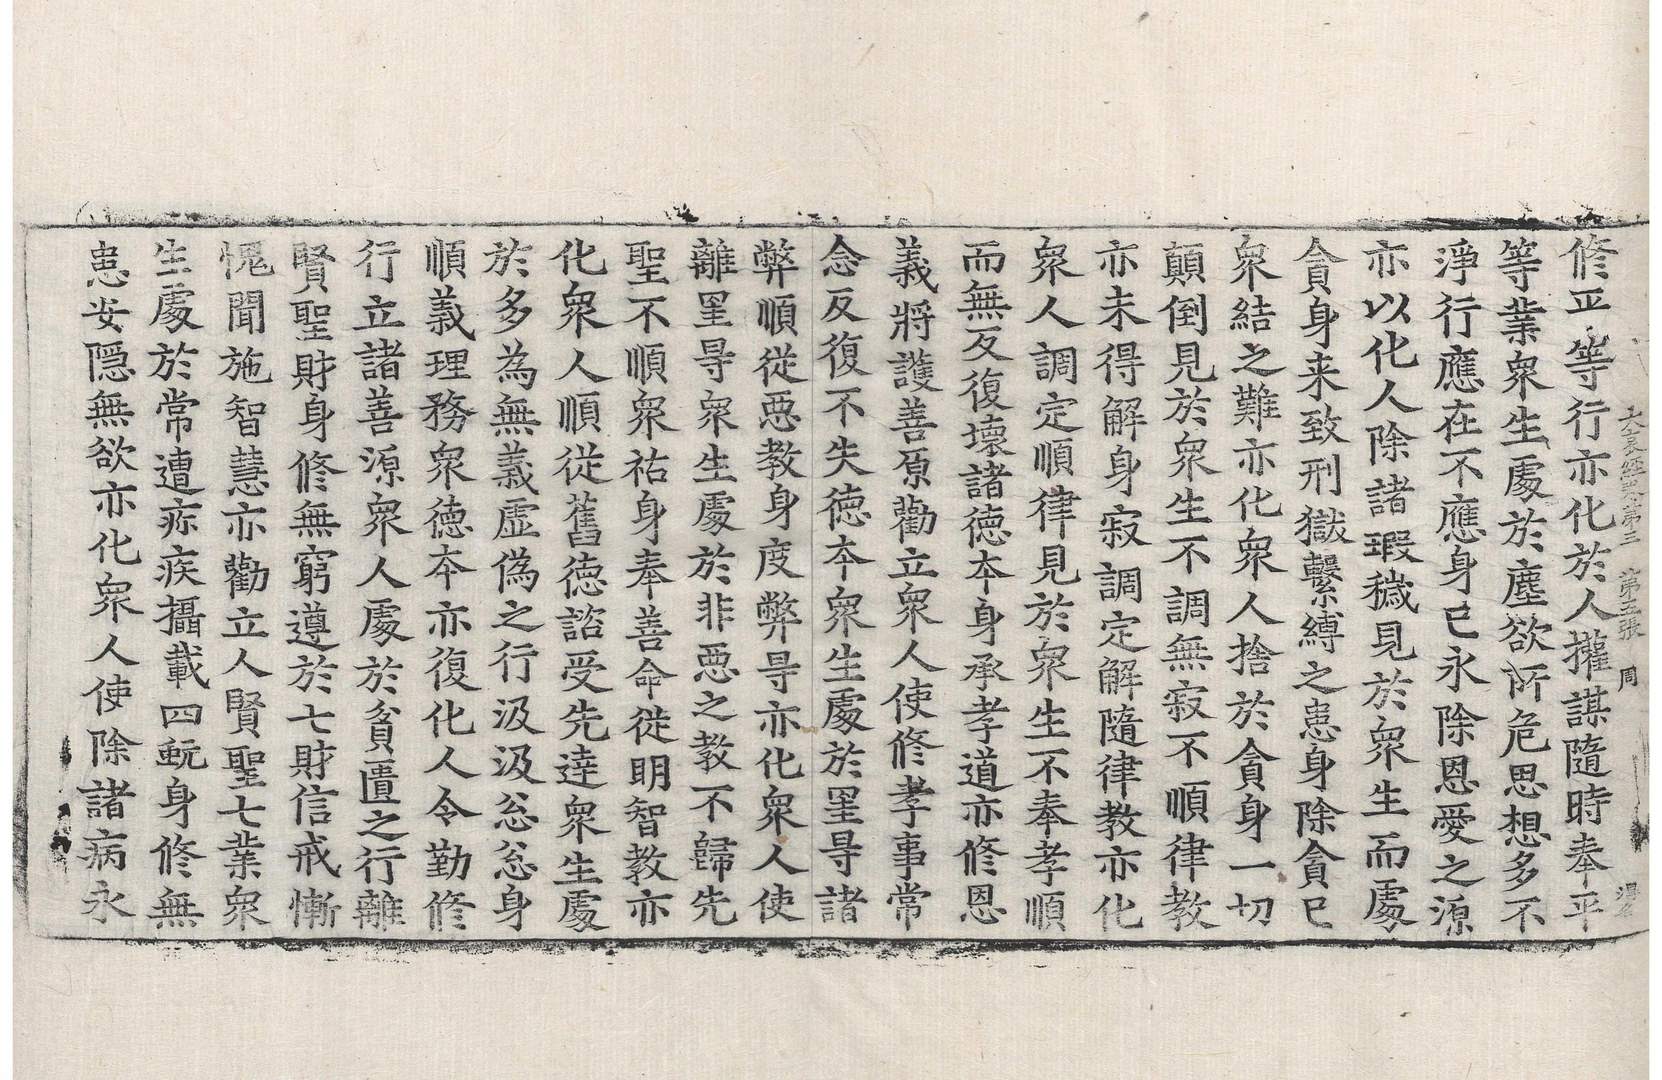 大哀經卷第三　第五張　周
修正等行亦化於人攉謀隨時奉平
等業衆生處於塵欲所危思想多不
淨行應在不應身已永除恩愛之源
亦以化人除諸瑕穢見於衆生而處
貪身来致刑獄繫縛之患身除貪已
衆結之難亦化衆人捨於貪身一切
顛倒見於衆生不調無寂不順律教
亦未得解身寂調定解隨律教亦化
衆人調定順律見於衆生不奉孝順
而無反復壞諸德本身承孝道亦修恩
義將護善原勸立衆人使修孝事常
念反復不失德本衆生處於罣㝵諸
弊順從惡教身度弊㝵亦化衆人使
離罣㝵衆生處於非惡之教不歸先
聖不順衆祐身奉善命從明智教亦
化衆人順從舊德諮受先達衆生處
於多為無義虛偽之行汲汲忩忩身
順義理務衆德本亦復化人令勤修
行立諸善源衆人處於貧匱之行離
賢聖財身修無窮遵於七財信戒慚
愧聞施智慧亦勸立人賢聖七業衆
生處於常遭疢疾攝載四蚖身修無
患安隱無欲亦化衆人使除諸病永